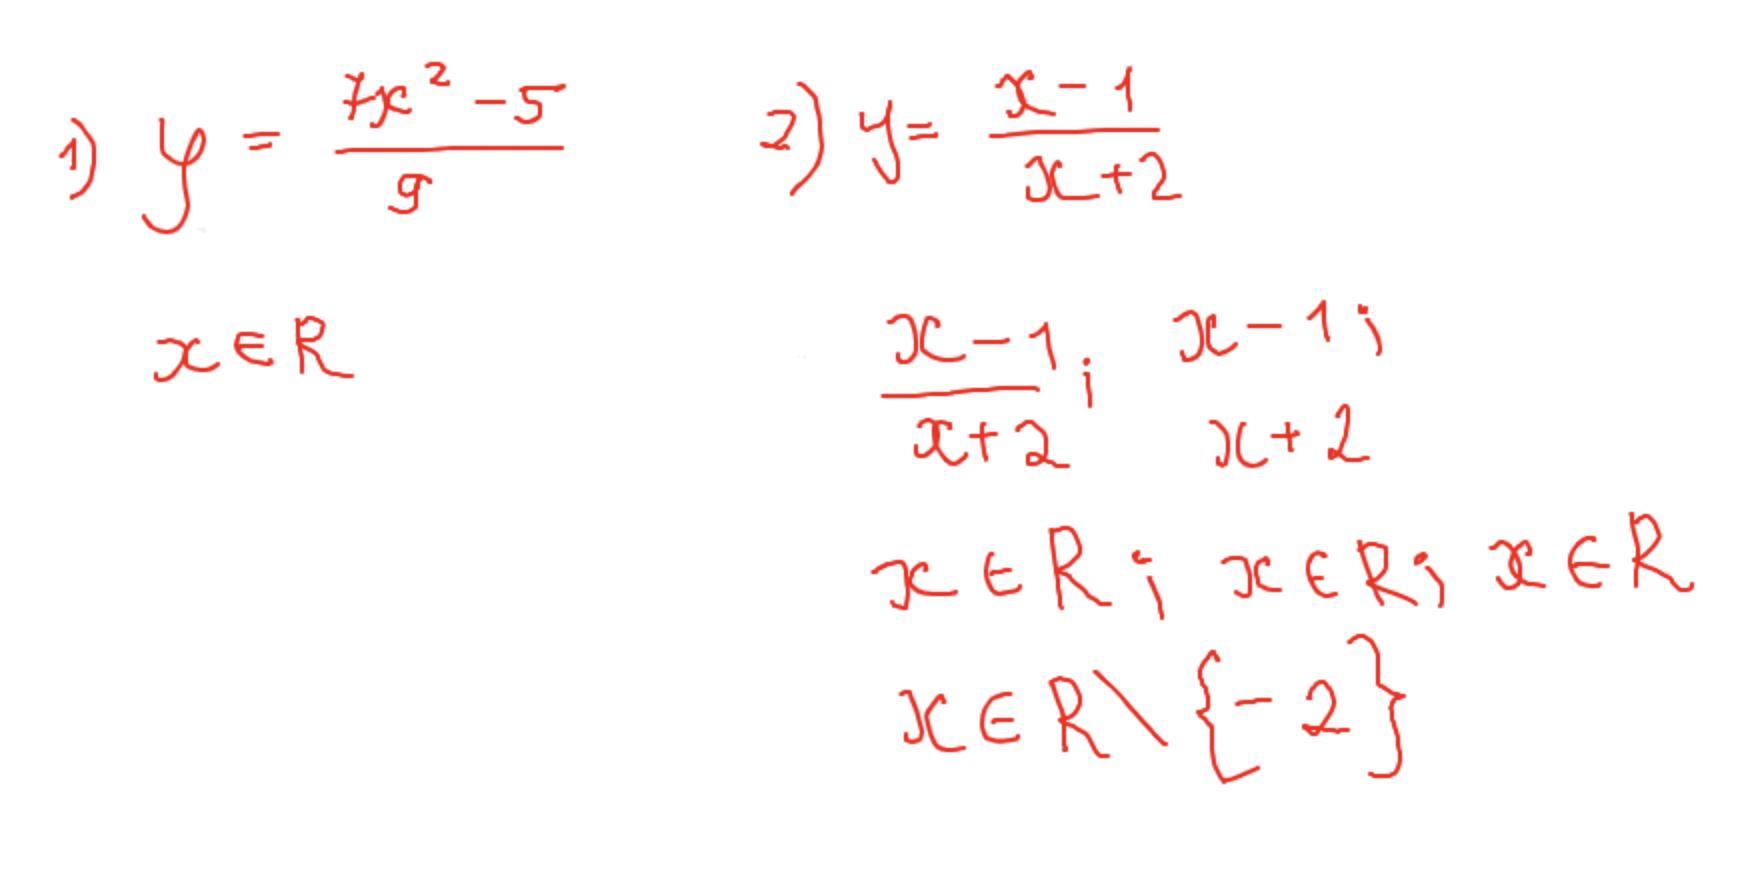 1) y = (7x² - 5)/9
x ∈ R
2) y = (x - 1)/(x + 2)
(x - 1)/(x + 2); x - 1;
x + 2
x ∈ R; x ∈ R; x ∈ R
x ∈ R \ {-2}